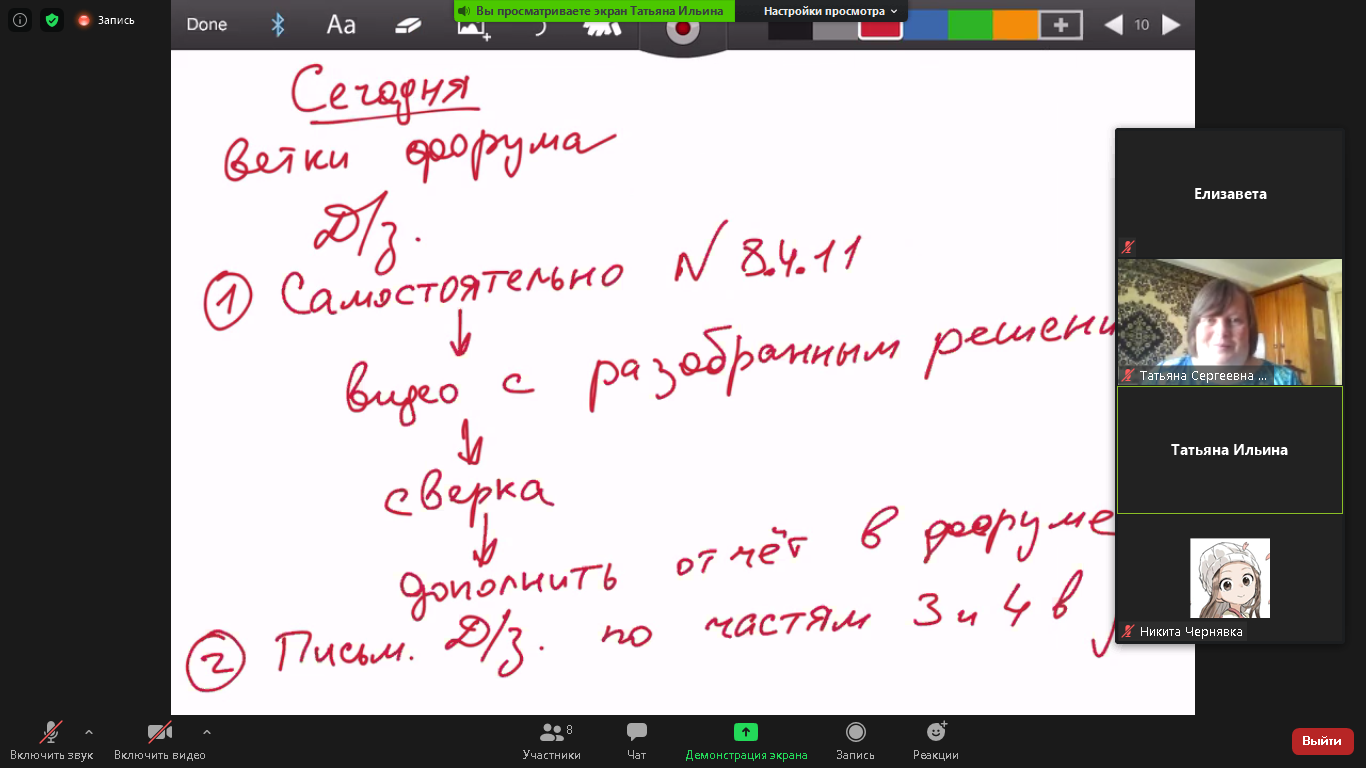 Запись
Done
Aa
Вы просматриваете экран Татьяна Ильина
Настройки просмотра
10
Сегодня
ветки форума
Д/з.
① Самостоятельно № 8.4.11
↓
видео с разобранным решени
↓
сверка
↓
дополнить отчёт в форуме
② Письм. Д/з. по частям 3 и 4 в
Елизавета
Татьяна Сергеевна ...
Татьяна Ильина
Никита Чернявка
Включить звук
Включить видео
Участники
8
Чат
Демонстрация экрана
Запись
Реакции
Выйти